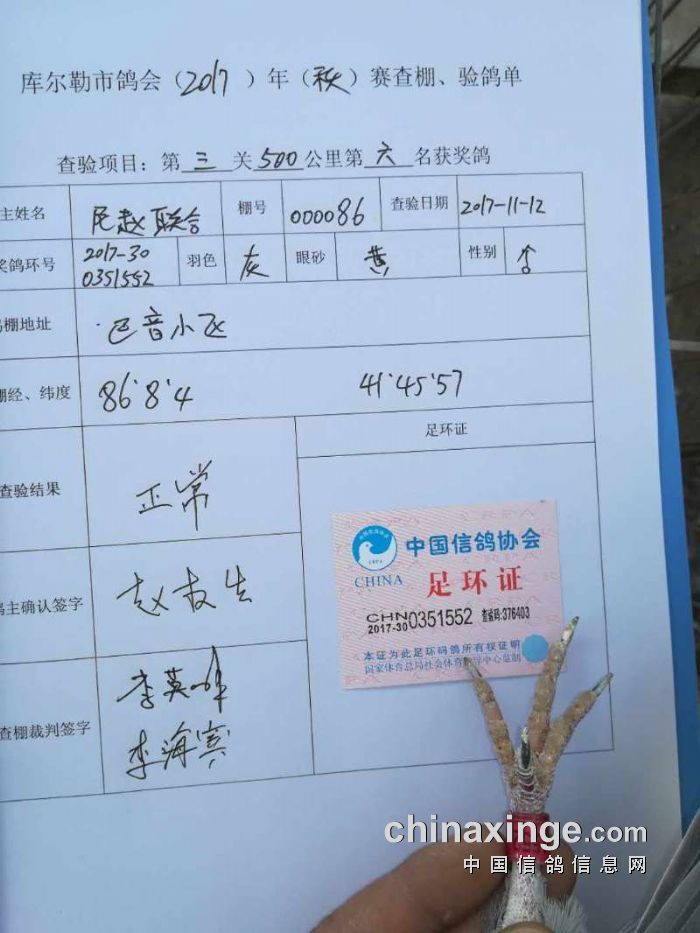 库尔勒市鸽会（2017）年（秋）赛查棚、验鸽单
查验项目：第三关500公里第六名获奖鸽
主姓名 民赵联合 棚号 000086 查验日期 2017-11-12
奖鸽环号 2017-30 0351552 羽色 灰 眼砂 黄 性别 ♂
棚地址 巴音小飞
棚经、纬度 86°8'4 41°45'57
足环证
查验结果 正常
中国信鸽协会
CHINA
足环证
CHN
2017-30 0351552 查验码:376403
本证为此足环码鸽所有权证明
国家体育总局社会体育指导中心监制
鸽主确认签字 赵友生
查棚裁判签字 李英峰
李海宾
chinaxinge.com
中国信鸽信息网